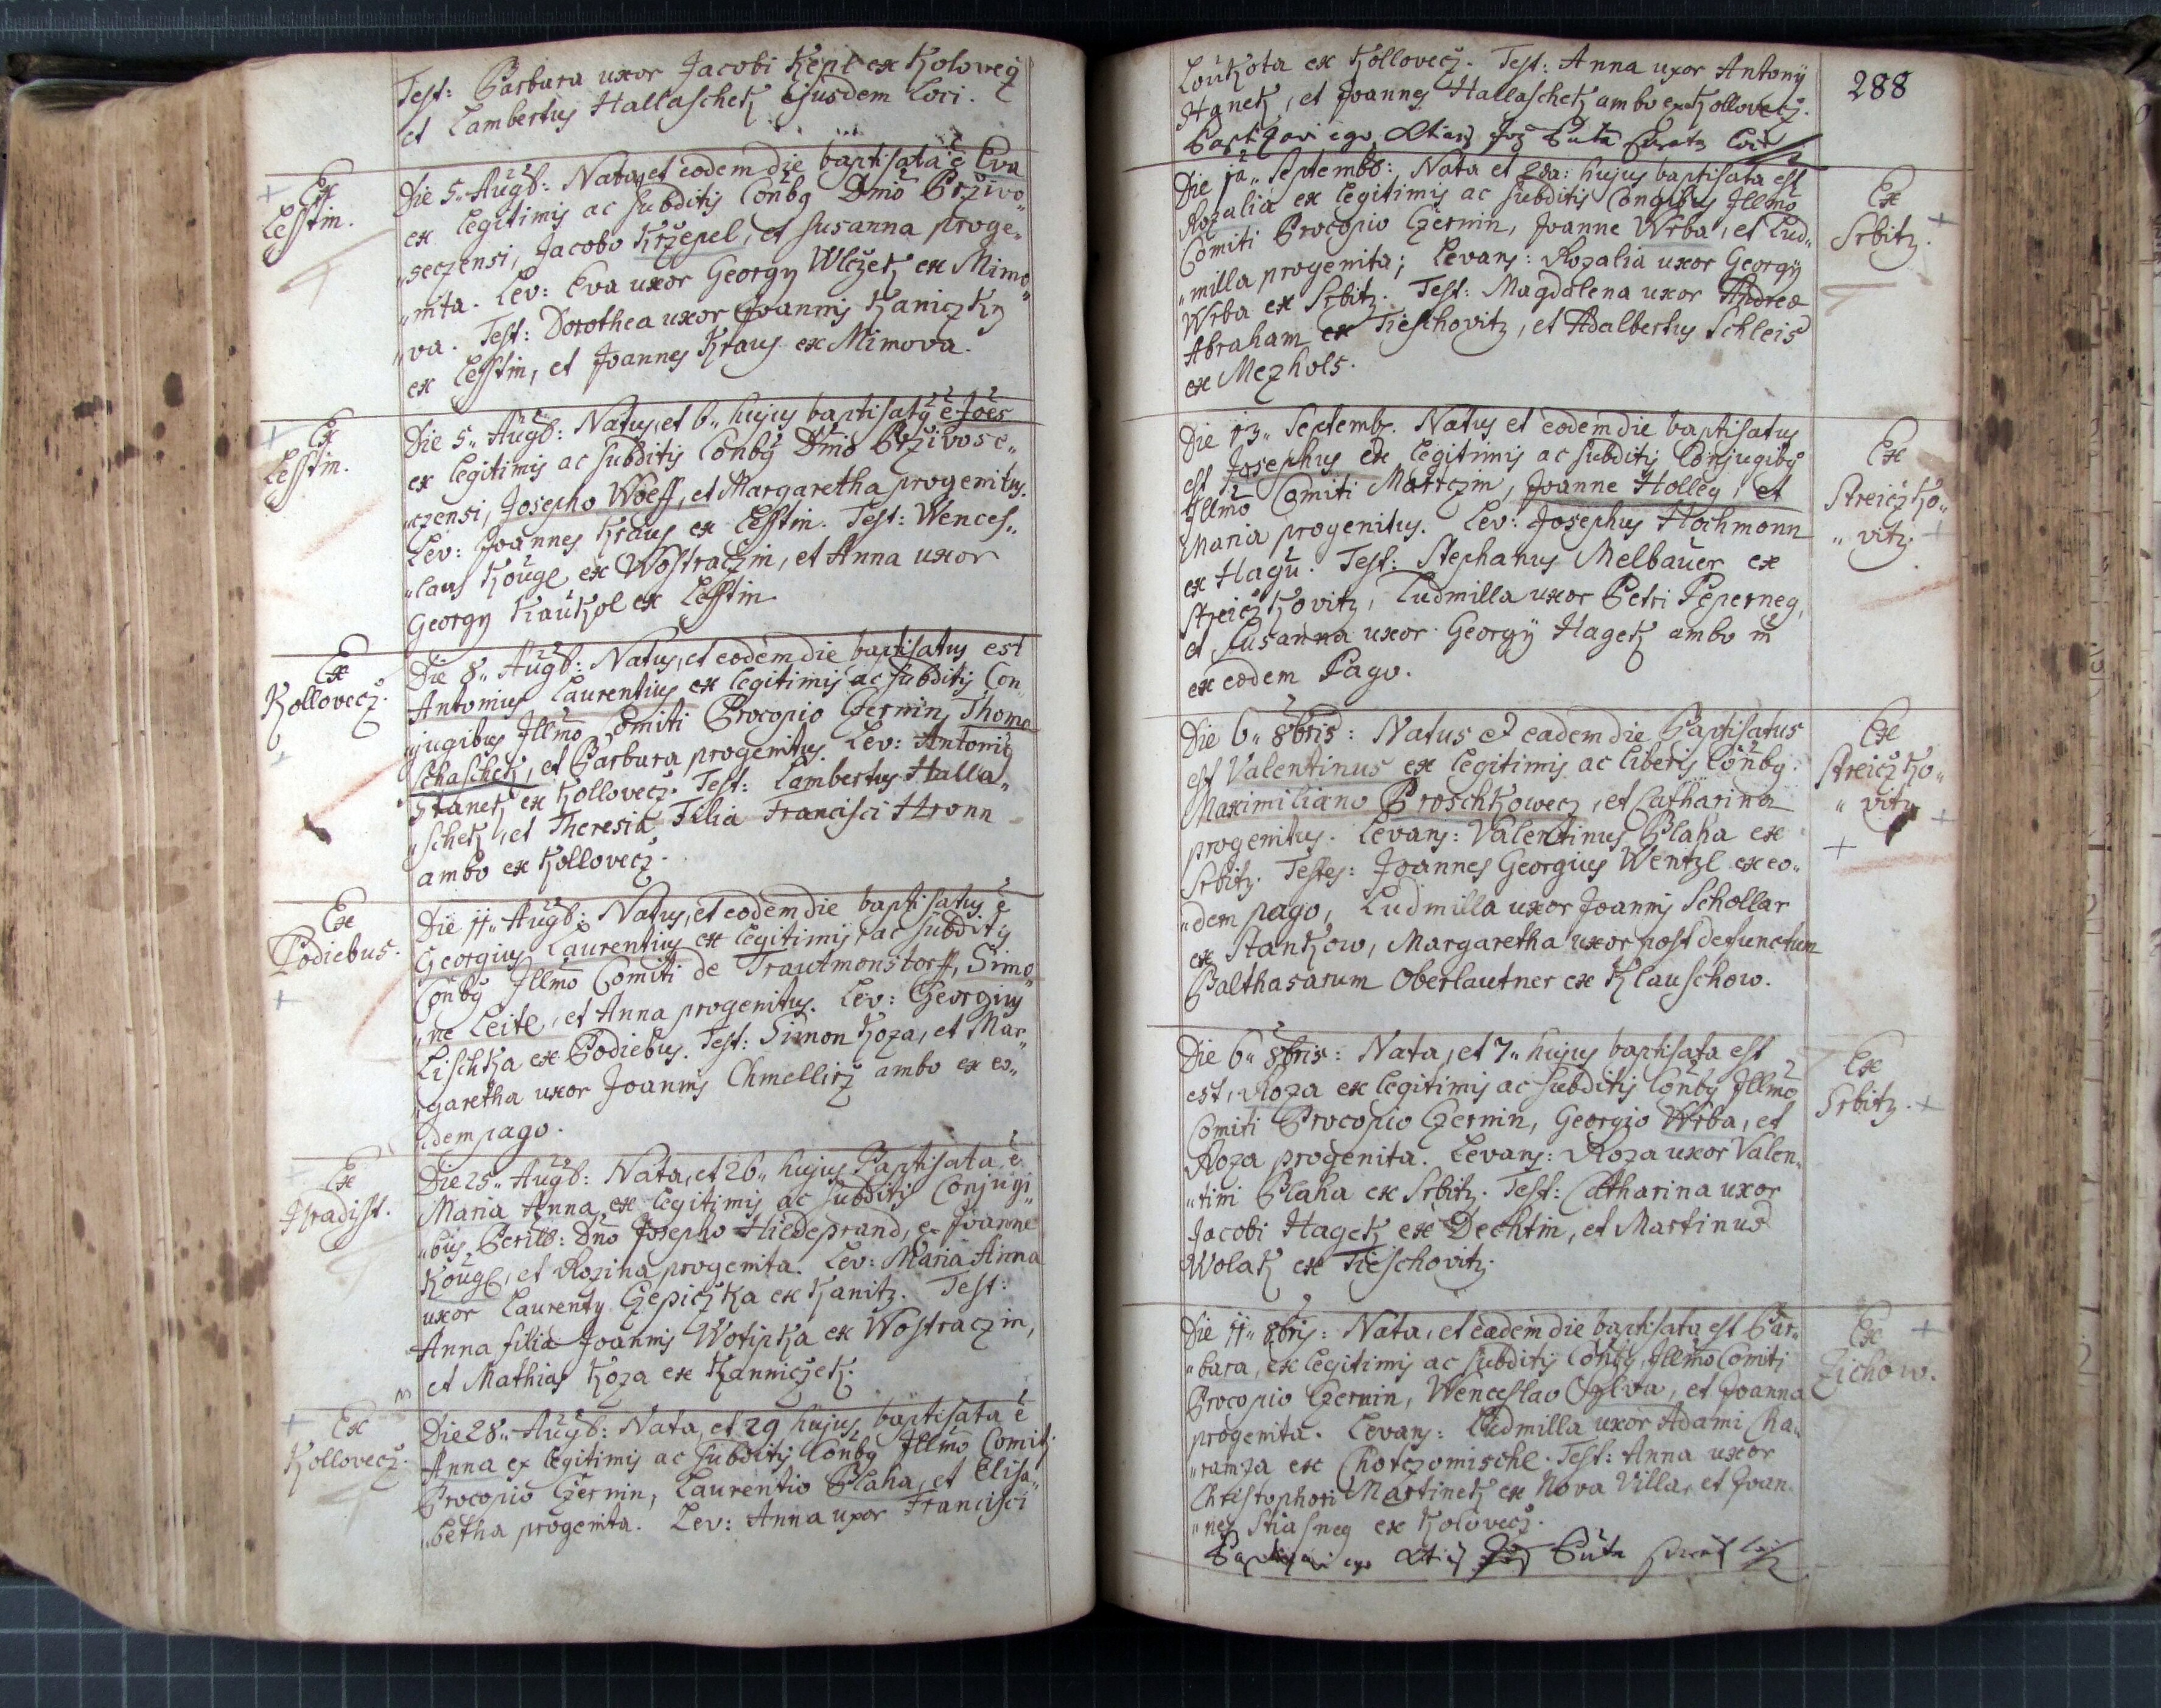 Test: Barbara uxor Jacobi Kepl ex Koloveg
et Lambertus Hallaschek ejusdem Loci.
Ex
Lesstin.
Die 5. Augb: Nata, et eodem die baptisata e Eva
ex legitimis ac subditis Conbg Dmo Przivo„
„seczensi, Jacobo Krzepel, et Susanna proge„
„nita. Lev: Eva uxor Georgy Wlczek ex Mimo„
„va. Test: Dorothea uxor Joannis Kaniczky
ex Lesstin, et Joannes Kraus ex Mimova.
Ex
Lesstin.
Die 5„ Augb: Natus, et 6„ hujus baptisatg e Joes
ex legitimis ac subditis Conbg Dmo Przivose„
„czensi, Josepho Woeff, et Margaretha progenitus.
Lev: Joannes Kraus ex Lesstin. Test: Wences„
„laus Kougl ex Wostraczin, et Anna uxor
Georgy Kaukol ex Lesstin
Ex
Kollovecz.
Die 8„ Augb: Natus, et eodem die baptisatus est
Antonius Laurentius ex legitimis ac subditis Con„
„jugibus Illmo Comiti Procopio Czernin, Thoma
Schaschek, et Barbara progenitus. Lev: Antonig
Stanek ex Kollovecz. Test: Lambertus Halla„
„schek, et Theresia Filia Francisci Hronn
ambo ex Kollovecz.
Ex
Podiebus.
Die 11„ Augb: Natus, et eodem die baptisatus e
Georgius Laurentius ex legitimis, ac subditis
Conbg Illmo Comiti de Trautmonstorff, Simo„
„ne Leitl, et Anna progenitus. Lev: Georgius
Lischka ex Podiebus. Test: Simon Koza, et Mar„
„garetha uxor Joannis Chmellirz ambo ex eo„
„dem pago.
Ex
Hradist.
Die 25„ Augb: Nata, et 26„ hujus Baptisata e
Maria Anna, ex legitimis ac subditis Conjugi„
„bus Perill: Dno Josepho Hildeprand, e Joanne
Kougl, et Rozina progenita. Lev: Maria Anna
uxor Laurenty Czepiczka ex Kanitz. Test:
Anna filia Joannis Wotipka ex Wostraczin,
et Mathias Koza ex Kanniczek.
Ex
Kollovecz.
Die 28„ Augb: Nata, et 29 hujus baptisata e
Anna ex legitimis ac subditis Conbg Illmo Comiti
Procopio Czernin, Laurentio Blaha, et Elisa„
„betha progenita. Lev: Anna uxor Francisci
288
Loukota ex Kollovecz. Test: Anna uxor Antony
Hanek, et Joannes Hallaschek ambo ex Kollovecz.
Baptizavi ego Puta
Die 1a„ Septemb: Nata et 2da: hujus baptisata est
Rozalia ex legitimis ac subditis Congibus Illmo
Comiti Procopio Czernin, Joanne Wrba, et Lud„
„milla progenita; Levans: Rozalia uxor Georgy
Wrba ex Srbitz. Test: Magdalena uxor Andreæ
Abraham ex Tieschovitz, et Adalbertus Schleis
ex Mezhols.
Ex
Srbitz.
Die 13„ Septemb. Natus et eodem die baptisatus
est Josephus ex legitimis ac subditis Conjugibg
Illmo Comiti Martzin, Joanne Holley, et
Maria progenitus. Lev: Josephus Hochmonn
ex Hagu. Test: Stephanus Melbauer ex
Streiczkovitz, Ludmilla uxor Petri Peperneg,
et Susanna uxor Georgy Hagek ambo
ex eodem Pago.
Ex
Streiczko„
„vitz.
Die 6„ 8bris: Natus et eadem die Baptisatus
est Valentinus ex legitimis ac liberis Conbg.
Maximiliano Proschkowecz, et Catharina
progenitus. Levans: Valentinus Blaha ex
Srbitz. Testes: Joannes Georgius Wentzl ex eo„
„dem pago, Ludmilla uxor Joannis Schollar
ex Stankow, Margaretha uxor post defunctum
Balthasarum Oberlautner ex Klauschow.
Ex
Streiczko„
„vitz
Die 6„ 8bris: Nata, et 7„ hujus baptisata est
est, Roza ex legitimis ac subditis Conbg Illmo
Comiti Procopio Czernin, Georgio Wrba, et
Roza progenita. Levans: Roza uxor Valen„
„tini Blaha ex Srbitz. Test: Catharina uxor
Jacobi Hagek ex Dechtin, et Martinus
Wolak ex Tieschovitz.
Ex
Srbitz.
Die 11„ 8bris: Nata, et eadem die baptisata est Bar„
„bara, ex legitimis ac subditis Conbg, Illmo Comiti
Procopio Czernin, Wenceslao Sylva, et Joanna
progenita. Levans: Ludmilla uxor Adami Cha„
„ramza ex Chotzomischl. Test: Anna uxor
Christophori Martinek ex Nova Villa, et Joan„
„nes Stiasneg ex Kolovecz.
Baptizavi ego Puta
Ex
Zichow.